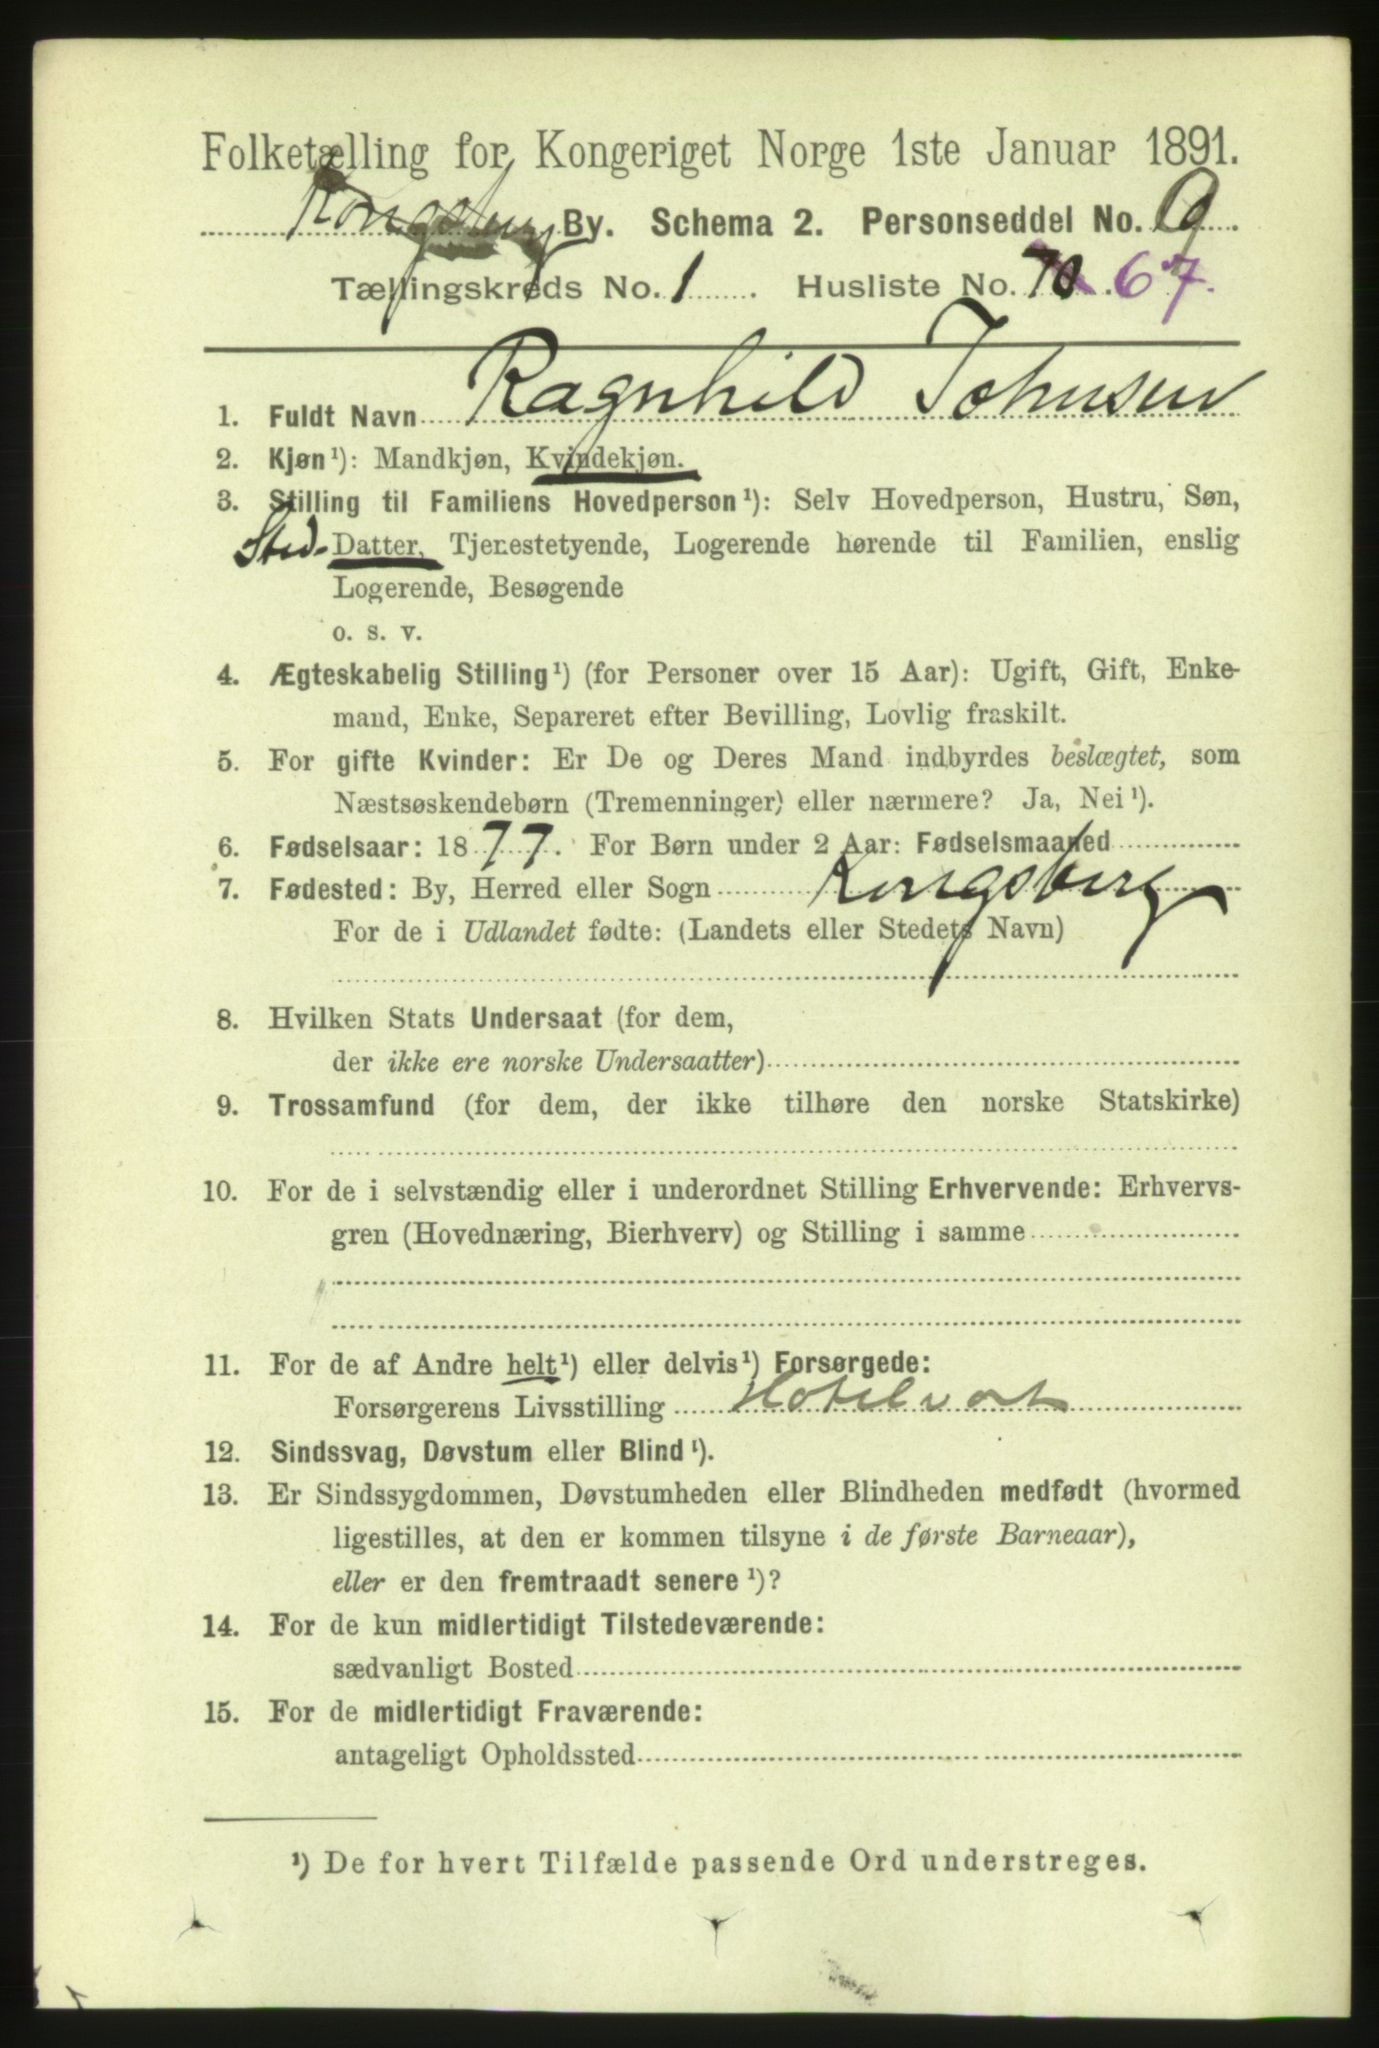 Folketælling for Kongeriget Norge 1ste Januar 1891.
Kongsberg By. Schema 2. Personseddel No. 9.
Tællingskreds No. 1. Husliste No. 70. 67.
1. Fuldt Navn Ragnhild Johnsen
2. Kjøn¹): Mandkjøn, Kvindekjøn.
3. Stilling til Familiens Hovedperson¹): Selv Hovedperson, Hustru, Søn,
Sted-Datter, Tjenestetyende, Logerende hørende til Familien, enslig
Logerende, Besøgende
o. s. v.
4. Ægteskabelig Stilling¹) (for Personer over 15 Aar): Ugift, Gift, Enke-
mand, Enke, Separeret efter Bevilling, Lovlig fraskilt.
5. For gifte Kvinder: Er De og Deres Mand indbyrdes beslægtet, som
Næstsøskendebørn (Tremenninger) eller nærmere? Ja, Nei¹).
6. Fødselsaar: 1877. For Børn under 2 Aar: Fødselsmaaned
7. Fødested: By, Herred eller Sogn Kongsberg
For de i Udlandet fødte: (Landets eller Stedets Navn)
8. Hvilken Stats Undersaat (for dem,
der ikke ere norske Undersaatter)
9. Trossamfund (for dem, der ikke tilhøre den norske Statskirke)
10. For de i selvstændig eller i underordnet Stilling Erhvervende: Erhvervs-
gren (Hovednæring, Bierhverv) og Stilling i samme
11. For de af Andre helt¹) eller delvis¹) Forsørgede:
Forsørgerens Livsstilling Hotelvært
12. Sindssvag, Døvstum eller Blind¹).
13. Er Sindssygdommen, Døvstumheden eller Blindheden medfødt (hvormed
ligestilles, at den er kommen tilsyne i de første Barneaar),
eller er den fremtraadt senere¹)?
14. For de kun midlertidigt Tilstedeværende:
sædvanligt Bosted
15. For de midlertidigt Fraværende:
antageligt Opholdssted
¹) De for hvert Tilfælde passende Ord understreges.